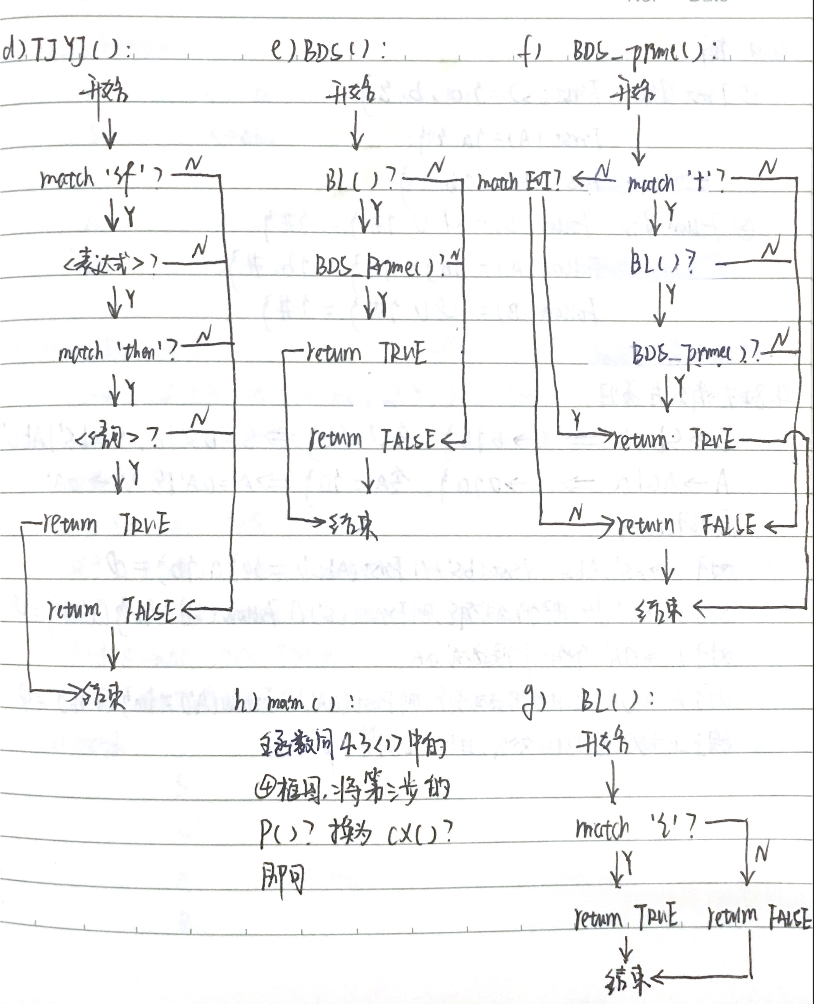 d) TJYJ():
开始
match 'if'? N
Y
<表达式>? N
Y
match 'then'? N
Y
<语句>? N
Y
return TRUE
return FALSE
结束
e) BDS():
开始
BL()? N
Y
BDS_prime()? N
return TRUE
return FALSE
结束
f) BDS_prime():
开始
match 't'? N
match ? N
Y
BL()? N
Y
BDS_prime()? N
Y
Y
return TRUE
N
return FALSE
结束
h) main():
主函数同4.3<1>中的
④框图,将第三步的
P()?换为CX()?
即可
g) BL():
开始
match 'i'?
Y
N
return TRUE return FALSE
结束